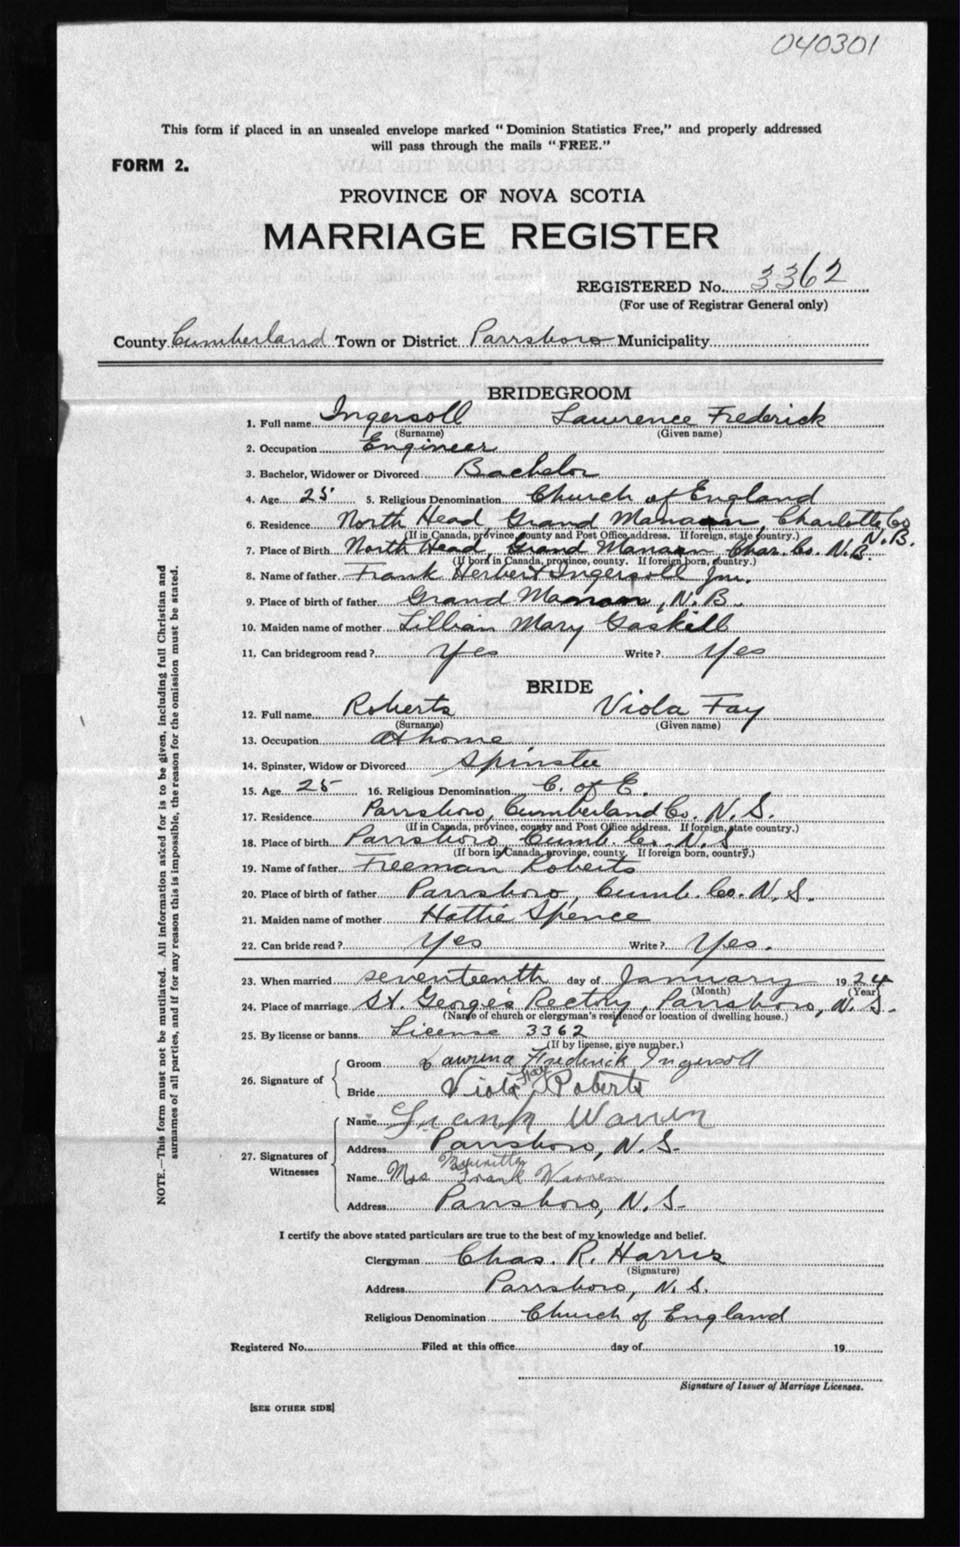 040301
This form if placed in an unsealed envelope marked "Dominion Statistics Free," and properly addressed
will pass through the mails "FREE."
FORM 2.
PROVINCE OF NOVA SCOTIA
MARRIAGE REGISTER
REGISTERED No. 3362
(For use of Registrar General only)
County Cumberland Town or District Parrsboro Municipality
BRIDEGROOM
1. Full name Ingersoll Lawrence Frederick
(Surname) (Given name)
2. Occupation Engineer
3. Bachelor, Widower or Divorced Bachelor
4. Age 25 5. Religious Denomination Church of England
6. Residence North Head, Grand Manan, Charlotte Co
N.B.
(If in Canada, province, county and Post Office address. If foreign, state country.)
7. Place of Birth North Head, Grand Manan Char. Co. N.B.
(If born in Canada, province, county. If foreign born, country.)
8. Name of father Frank Herbert Ingersoll Jnr.
9. Place of birth of father Grand Manan, N.B.
10. Maiden name of mother Lillian Mary Gaskill
11. Can bridegroom read? Yes Write? Yes
BRIDE
12. Full name Roberts Viola Fay
(Surname) (Given name)
13. Occupation At home
14. Spinster, Widow or Divorced Spinster
15. Age 25 16. Religious Denomination C. of E.
17. Residence Parrsboro, Cumberland Co. N.S.
(If in Canada, province, county and Post Office address. If foreign, state country.)
18. Place of birth Parrsboro, Cumb. Co. N.S
(If born in Canada, province, county. If foreign born, country.)
19. Name of father Freeman Roberts
20. Place of birth of father Parrsboro, Cumb. Co. N.S.
21. Maiden name of mother Hattie Spence
22. Can bride read? Yes Write? Yes.
23. When married seventeenth day of January 1924
(Month) (Year)
24. Place of marriage St. George's Rectory, Parrsboro, N.S.
(Name of church or clergyman's residence or location of dwelling house.)
25. By license or banns License 3362
(If by license, give number.)
26. Signature of
Groom Lawrence Frederick Ingersoll
Bride Viola Fay Roberts
27. Signatures of Witnesses
Name Frank Warren
Address Parrsboro, N.S.
Name Mrs Frank Warren
Address Parrsboro, N.S.
I certify the above stated particulars are true to the best of my knowledge and belief.
Clergyman Chas. R. Harris
(Signature)
Address Parrsboro, N.S.
Religious Denomination Church of England
Registered No. Filed at this office day of 19
Signature of Issuer of Marriage Licenses.
[SEE OTHER SIDE]
NOTE.—This form must not be mutilated. All information asked for is to be given, including full Christian and
surnames of all parties, and if for any reason this is impossible, the reason for the omission must be stated.